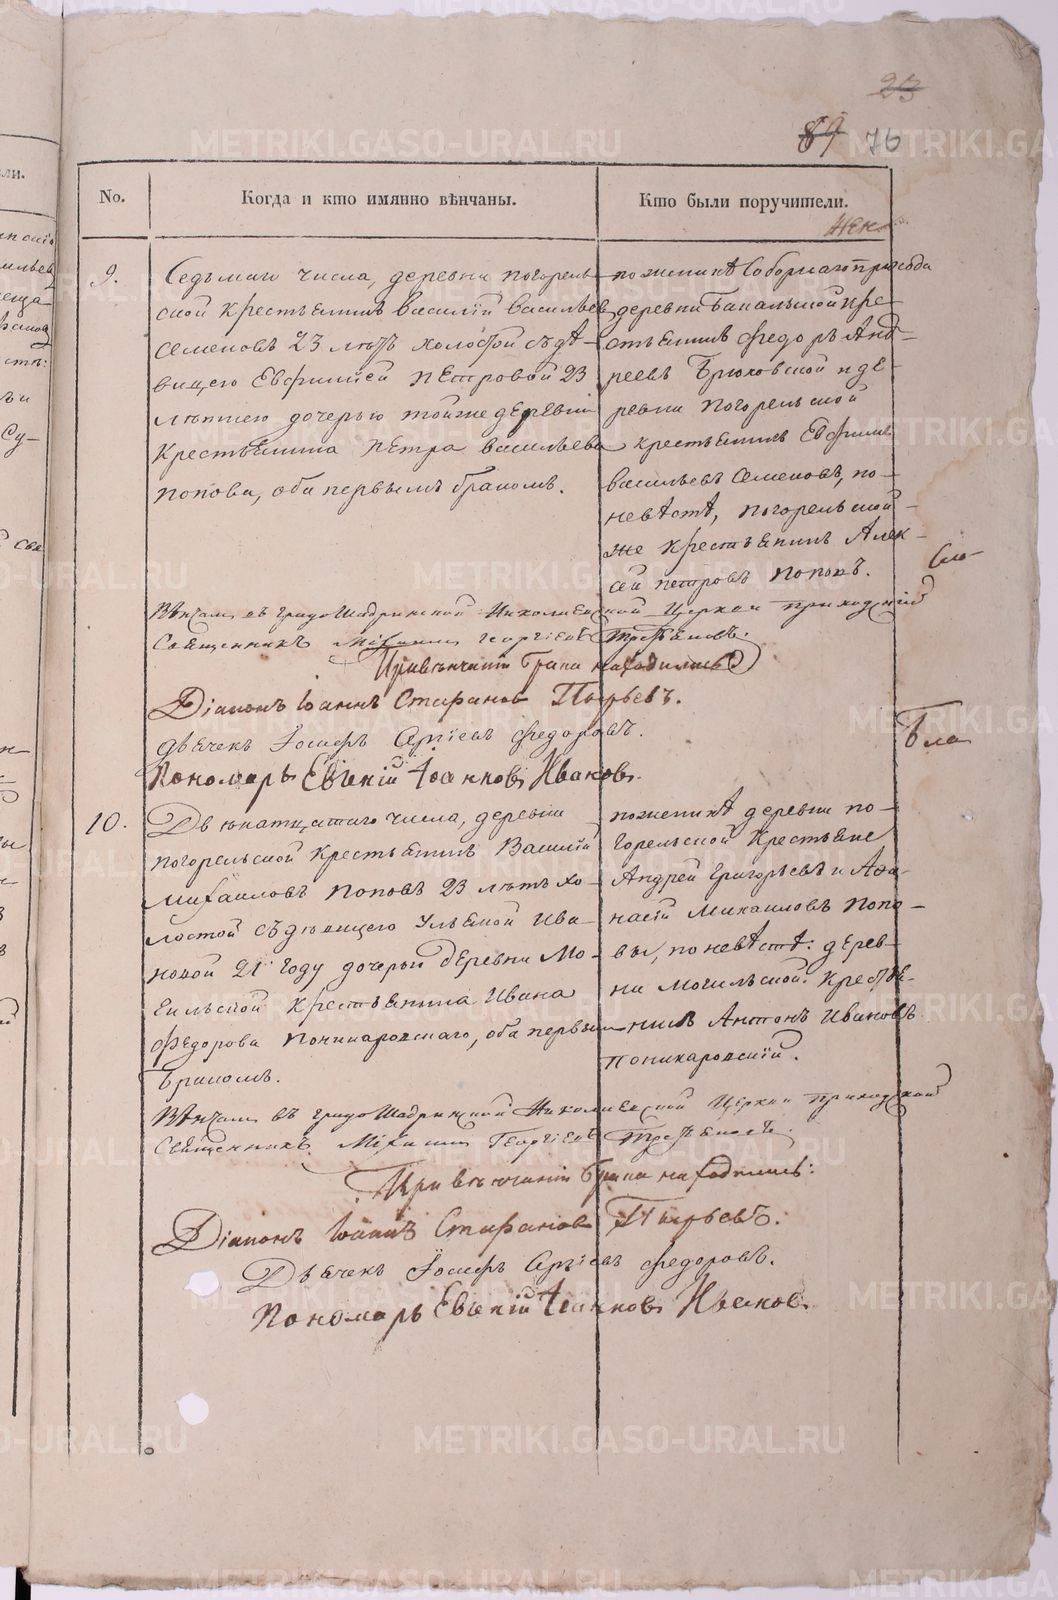 23
89 76
No.
Когда и кто имянно вѣнчаны.
Кто были поручители.
жен
9.
Седьмаго числа, деревни погорель
ской крестьянинъ василій васильевъ
Семеновъ 23 лѣтъ холостой съ дѣ-
вицею Евфиміей петровой 23
лѣтнею дочерью тойже деревни
крестьянина петра васильева
попова, оба первымъ бракомъ.
по женихѣ Соборнаго прихода
деревни Бакальской кре
стьянинъ Федоръ Анд-
реевъ Брюховской и де-
ревни погорельской
крестьянинъ Евфимъ
васильевъ Семеновъ, по
невѣстѣ, погорельской
же крестьянинъ Алек-
сей петровъ поповъ.
Вѣнчалъ въ градо Шадринской Николаевской Церкви приходскій
Священникъ Михаилъ Георгіевъ
При вѣнчаніи брака находились
Діаконъ Іоаннъ Стефановъ Пырьевъ.
дьячекъ Іосифъ Сергіевъ Федоровъ.
Пономарь Евгеній Іоанновъ Ивановъ
Бла
10.
Двенатцатаго числа, деревни
погорельской крестьянинъ Василій
михайловъ поповъ 23 лѣтъ хо-
лостой съ дѣвицею Ульяной Ива-
новой 21 году дочерью деревни Мо-
гильской крестьянина Ивана
Федорова Поникаровскаго, оба первым
бракомъ.
по женихѣ деревни по-
горельской крестьяне
Андрей Григорьевъ и Афа-
насій Михаиловъ Попо-
вы, по невѣстѣ: дерев-
ни Могильской крестья-
нинъ Антонъ Ивановъ
поникаровскій.
Вѣнчалъ въ градо Шадринской Николаевской Церкви приходской
Священникъ Михаилъ Георгіевъ
При вѣнчаніи брака находились:
Діаконъ Іоаннъ Стефановъ Пырьевъ.
Дьячекъ Іосифъ Сергіевъ Федоровъ.
Пономарь Евгеній Іоанновъ Ивановъ.
METRIKI.GASO-URAL.RU